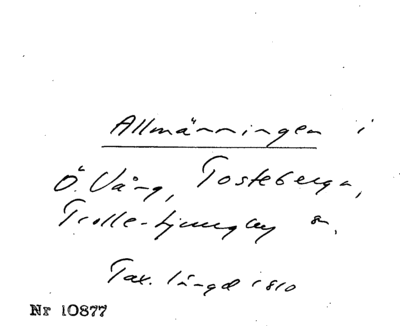 Allmänningen i
Ö. Vång, Tosteberga,
Trolle-Ljungby sn.
Tax. längd 1810
Nr 10877